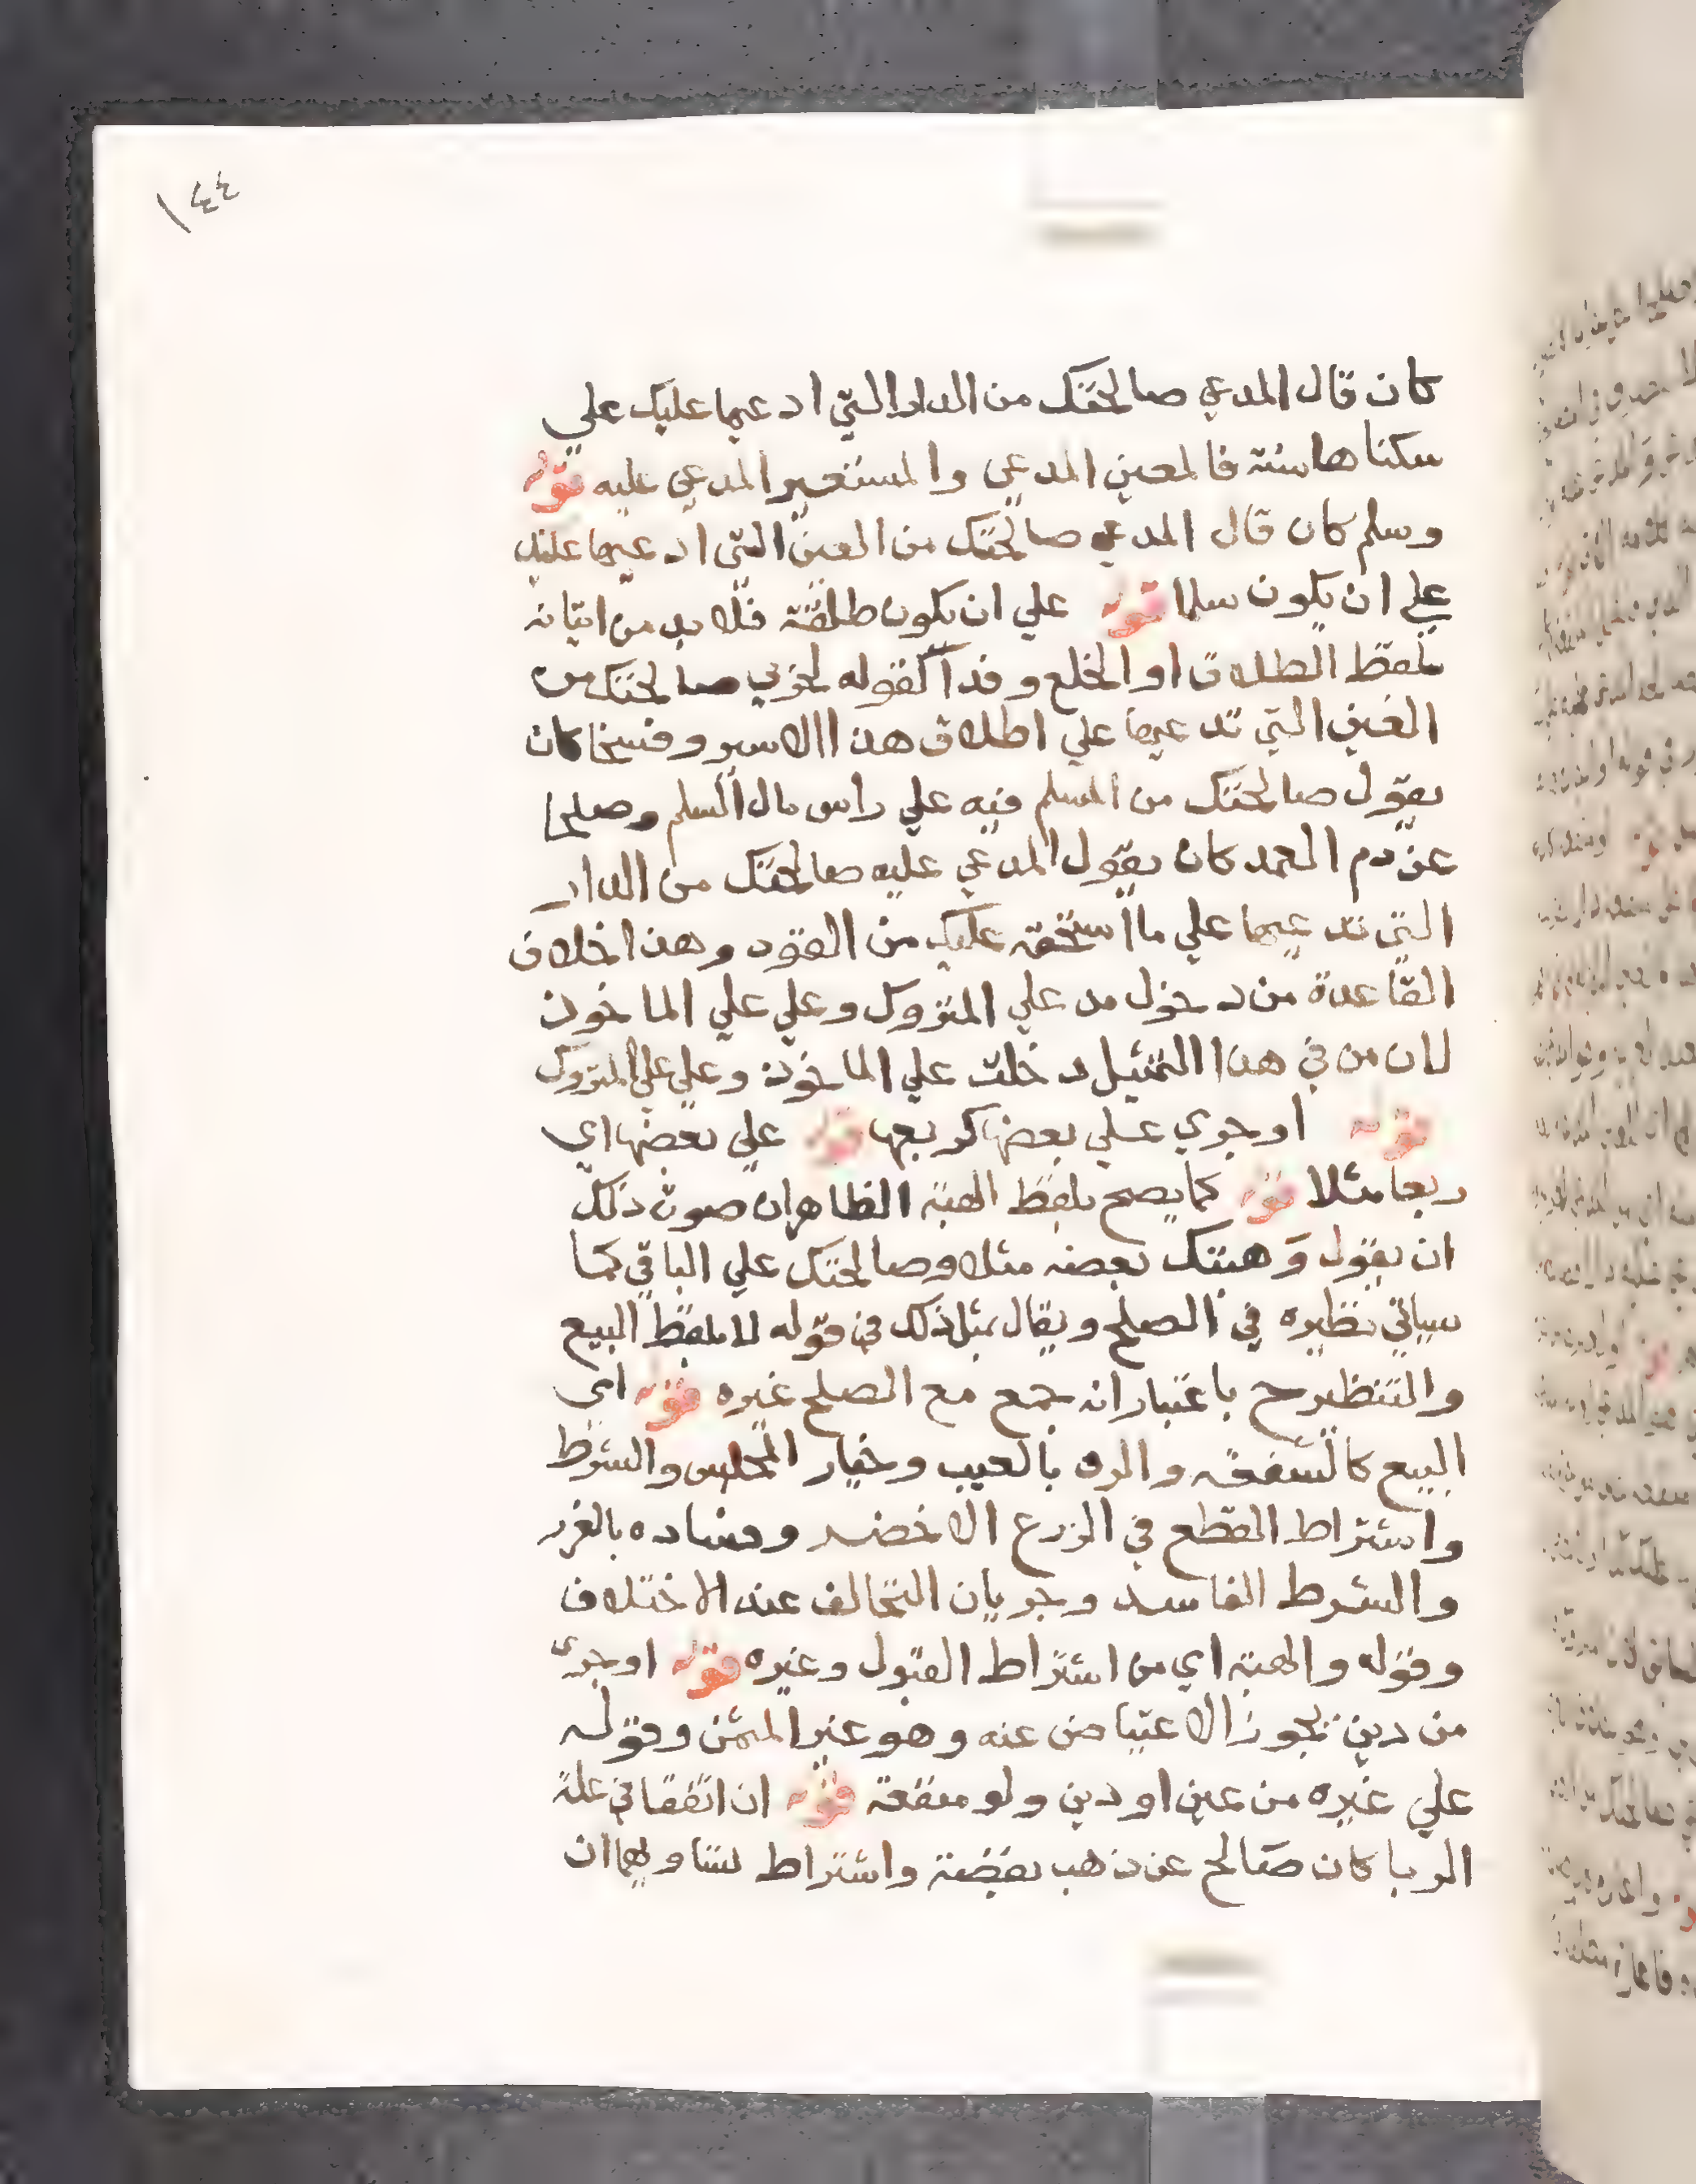 ١٤٤
كان قال المدعي صالحتك من الدار التي ادعيها عليك علي
سكناها سنة فالمعير المدعي والمستعير المدعي عليه قوله
وسلم كان قال المدعي صالحتك من العين التي ادعيها عليك
علي ان يكون سلما قوله علي ان يكون طلقة فلا بد من اتيانه
بلفظ الطلاق او الخلع وفدا كقوله لحربي صالحتك من
العين التي تدعيها علي اطلاق هذا الاسير وفسخا كان
يقول صالحتك من المسلم فيه علي راس مال السلم وصلحا
عن دم العمد كان يقول المدعي عليه صالحتك من الدار
التي تدعيها علي ما استحقه عليك من القود وهذا خلاف
القاعدة من دخول من علي المتروك وعلي علي الماخوذ
لان من في هذا التمثيل دخلت علي الماخوذ وعلي علي المتروك
قوله او جري علي بعضها كربعها قوله علي بعضها اي
ربعا مثلا قوله كما يصح بلفظ الهبة الظاهر ان صوره ذلك
ان يقول وهبتك بعضه مثلا وصالحتك علي الباقي كما
سياتي نظيره في الصلح ويقال مثل ذلك في قوله لا بلفظ البيع
والتنظير ح باعتبار انه جمع مع الصلح غيره قوله اي
البيع كالشفعة والرد بالعيب وخيار المجلس والشرط
واشتراط القطع في الزرع الاخضر وفساده بالغرر
والشرط الفاسد وجريان التحالف عند الاختلاف
وقوله والهبة اي من اشتراط القبول وغيره قوله او جري
من دين يجوز الاعتياض عنه وهو غير المثمن وقوله
علي غيره من عين او دين ولو منفعة قوله ان اتفقا في علة
الربا كان صالح عن ذهب بفضة واشتراط تساويهما ان